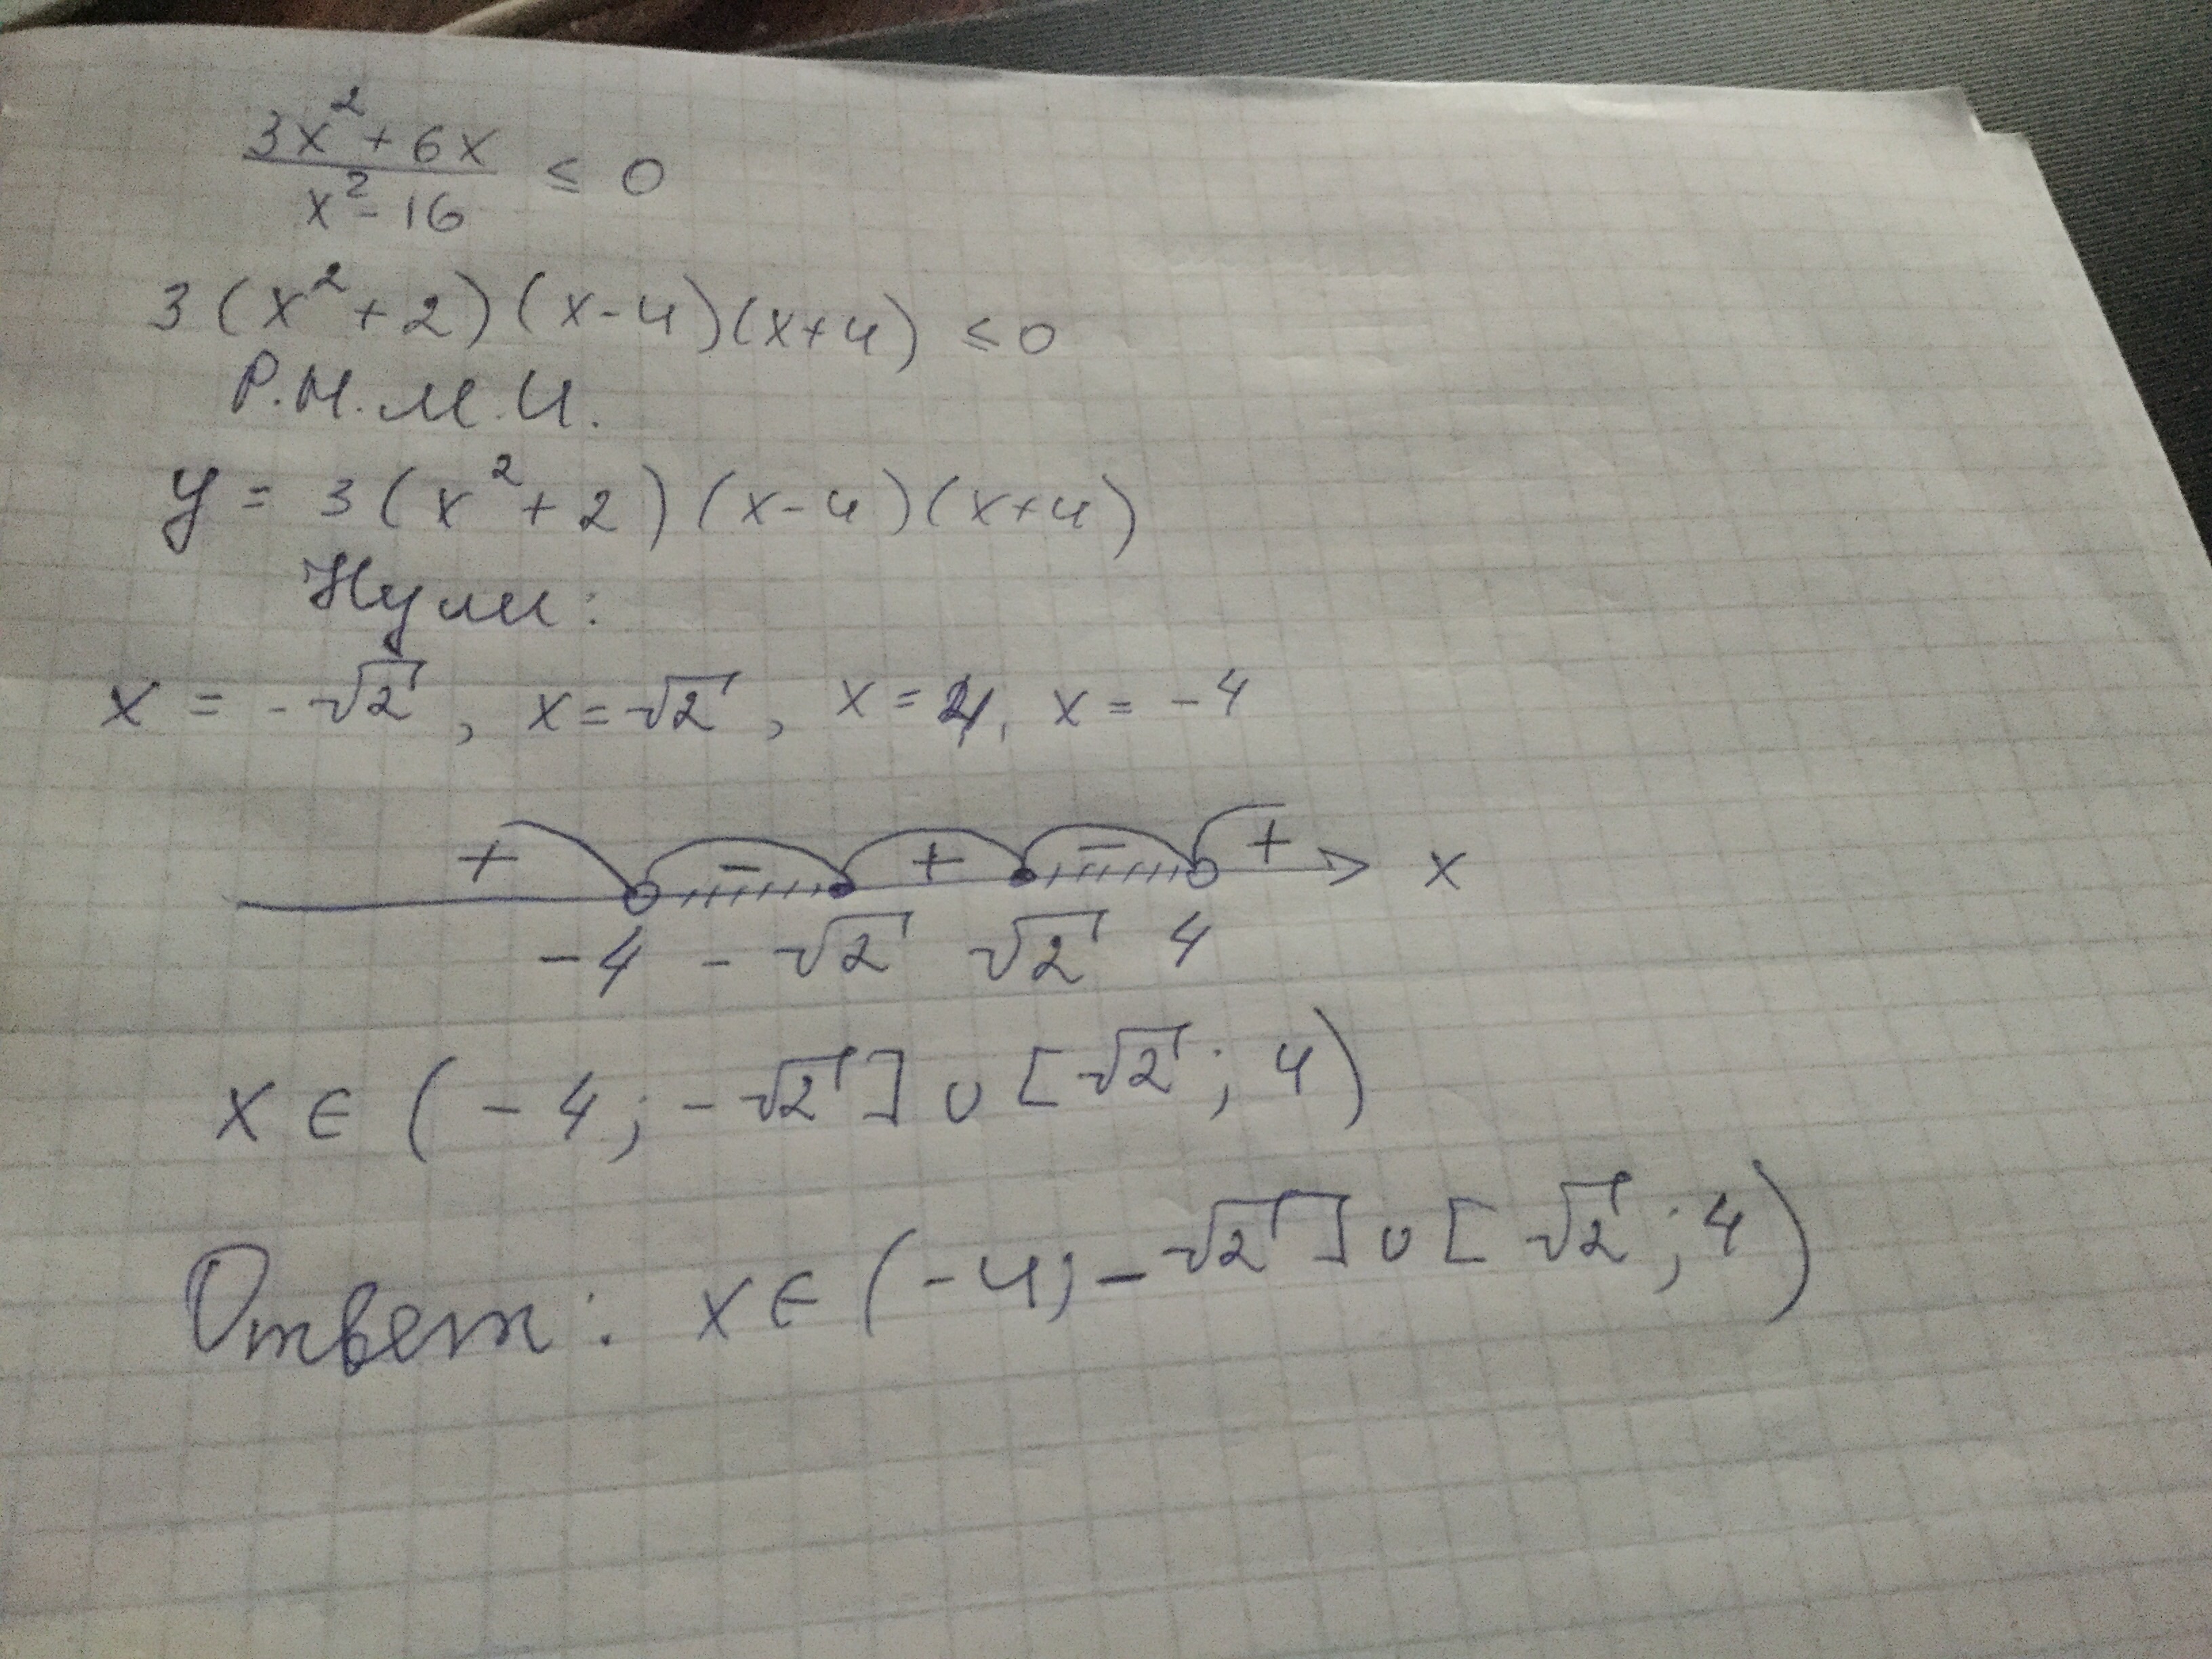 3x² + 6x
x² - 16 ≤ 0
3(x² + 2)(x-4)(x+4) ≤ 0
Р.Н.М.И.
y = 3(x² + 2)(x-4)(x+4)
Нули:
x = -√2, x = √2, x = 4, x = -4
+ - + - + x
-4 -√2 √2 4
x ∈ (-4; -√2] ∪ [√2; 4)
Ответ: x ∈ (-4; -√2] ∪ [√2; 4)